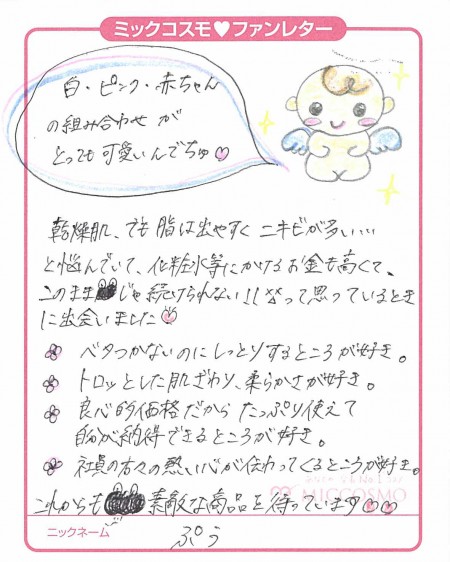 ミックコスモ♥ファンレター
白・ピンク・赤ちゃん
の組み合わせ が
とっても可愛いんでちゅ♡
乾燥肌、でも 脂は出やすく ニキビが多い…
と悩んでいて、化粧水等にかけるお金も高くて、
このまま じゃ続けられない!! って思っているとき
に出会いました♡
ベタつかないのにしっとりするところが好き。
トロッとした肌ざわり、柔らかさが好き。
良心的価格だから たっぷり使えて
自分が納得できるところが好き。
社員の方々の熱い心が伝わってくるところが好き。
MICCOSMO
これからも 素敵な商品を待っています♡♡
ニックネーム ぷぅ